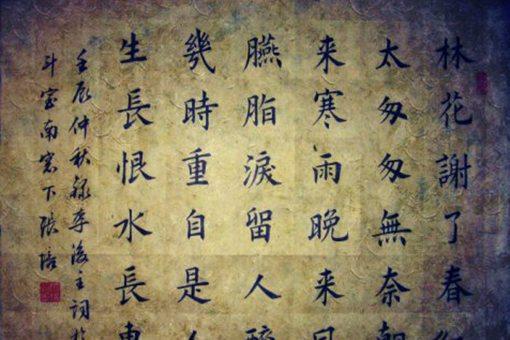 林花謝了春紅
太匆匆無奈朝
来寒雨晚来風
臙脂淚留人醉
幾時重自是人
生長恨水長東
壬辰仲秋録李後主詞於
斗室南窓下